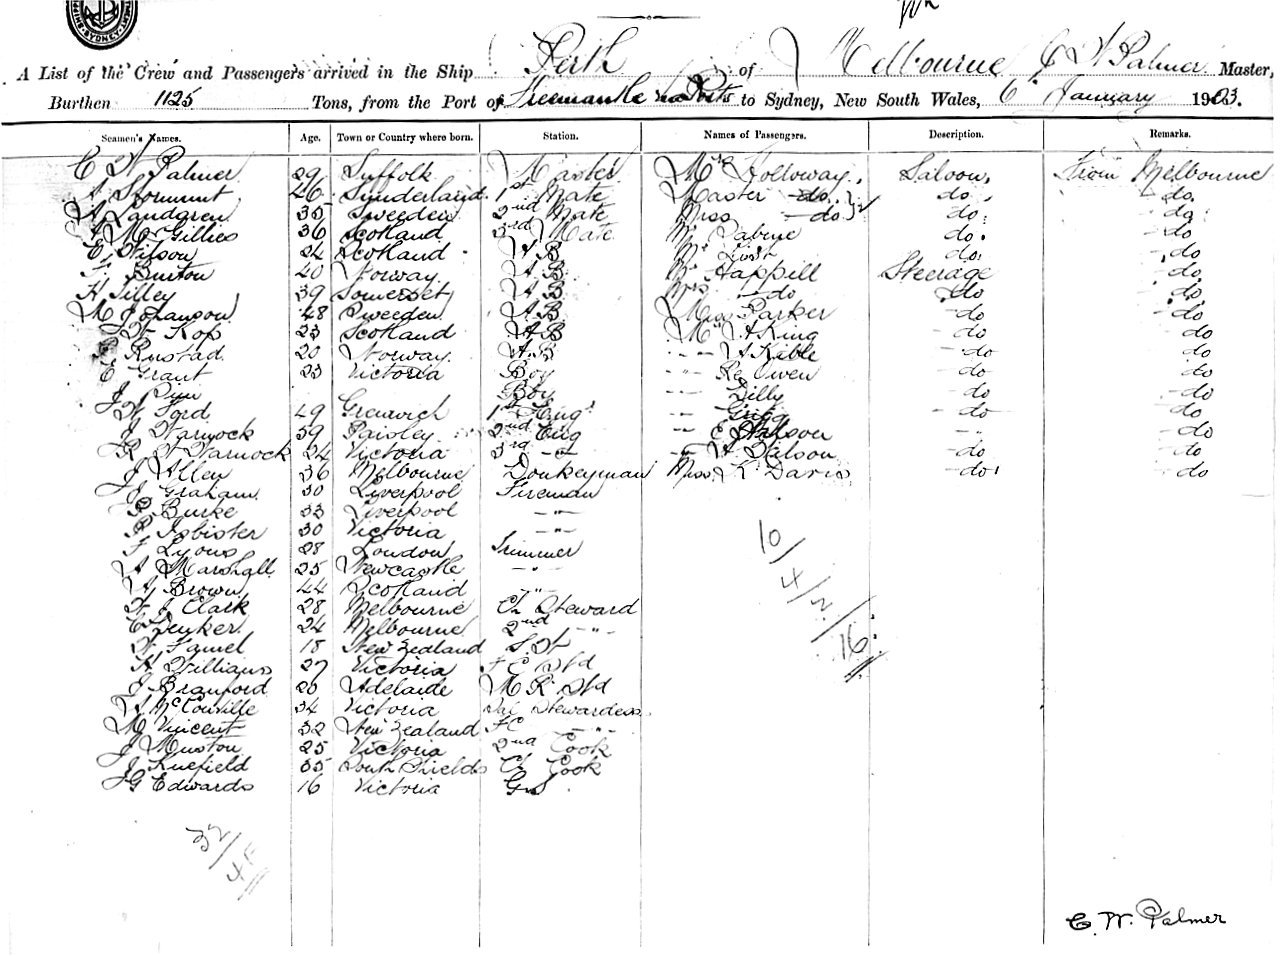 A List of the Crew and Passengers arrived in the Ship Perth of Melbourne C W Palmer Master,
Burthen 1125 Tons, from the Port of Freemantle via Ports to Sydney, New South Wales, 6 January 1903.
Seamen's Names. Age. Town or Country where born. Station. Names of Passengers. Description. Remarks.
C W Palmer 29 Suffolk Master Mrs Holloway Saloon From Melbourne
A Stormunt 46 Sunderland 1st Mate Master do do do
A Landgren 35 Sweeden 2nd Mate Miss do do do
A McGillies 36 Scotland 3rd Mate Mr do do
E Wilson 24 Scotland A B Mr do do
Burton 40 Norway A B Mr Happill Steerage do
H Tilley 39 Somerset A B Mrs do do do
M Johanson 48 Sweeden A B Miss Parker do do
W Kop 23 Scotland A B Mr A King do do
Rustad 20 Norway A.B - - A Kible do do
E Grant 23 Victoria Boy - - Owen do do
J Boy - - Lilly do do
W Ford 49 Greenwich 1st Eng -- do do
J Warnock 39 Paisley 2nd Eng -- E Watson -- do
R W Warnock 24 Victoria 3rd - - Wilson do do
J Allen 36 Melbourne Donkeyman Miss K Davis do do
J Graham 30 Liverpool Fireman
P Burke 33 Liverpool -"-
R Isbister 30 Victoria -"-
F Lyons 28 London Trimmer
A Marshall 25 Newcastle -"-
A Brown 44 Scotland -"-
W J Clark 28 Melbourne Ch Steward
C Denker 24 Melbourne 2nd -"-
W 18 New Zealand S. St
A Williams 27 Victoria F C Std
J Branford 20 Adelaide M R Std
A McConville 34 Victoria Sal Stewardess
M Vincent 32 New Zealand FC -"-
J Muston 25 Victoria 2nd Cook
J 35 South Shields Ch Cook
J G Edwards 16 Victoria
10/4/2/16
32/
C. W. Palmer